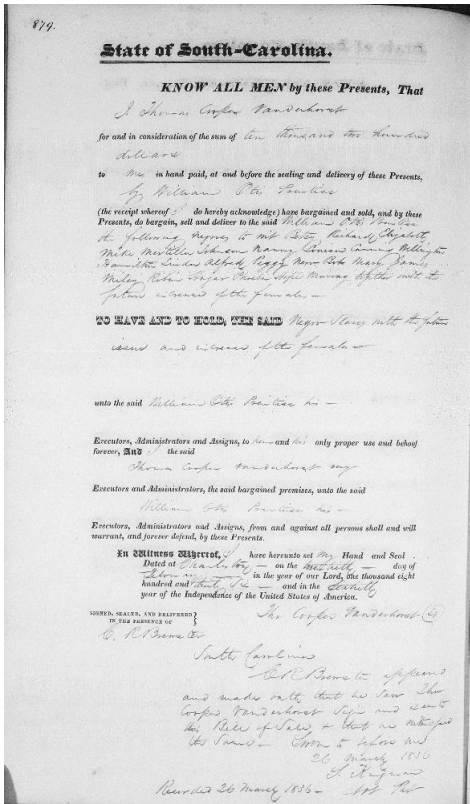 879.
State of South-Carolina.
KNOW ALL MEN by these Presents, That
I Thomas Cooper Vanderhorst
for and in consideration of the sum of ten thousand two hundred
dollars
to me in hand paid, at and before the sealing and delivery of these Presents,
by William Otis Prentiss
(the receipt whereof I do hereby acknowledge) have bargained and sold, and by these
Presents, do bargain, sell and deliver to the said William Otis Prentiss
the following negroes to wit Betsy Richard Elizabeth
Mike Johnson Nanny Wellington
Hamilton Alfred Peggy Bob Mary James
Robin together with the
future increase of the females —
TO HAVE AND TO HOLD, THE SAID Negro Slaves with the future
issue and increase of the females —
unto the said William Otis Prentiss his —
Executors, Administrators and Assigns, to him and his only proper use and behoof
forever, And I the said
Thomas Cooper Vanderhorst my
Executors and Administrators, the said bargained premises, unto the said
William Otis Prentiss his —
Executors, Administrators and Assigns, from and against all persons shall and will
warrant, and forever defend, by these Presents.
In Witness Whereof, I have hereunto set my Hand and Seal
Dated at Charleston — on the — day of
— in the year of our Lord, one thousand eight
hundred and thirty Six — and in the Sixtieth
year of the Independence of the United States of America.
Tho Cooper Vanderhorst
SIGNED, SEALED, AND DELIVERED
IN THE PRESENCE OF
C. R Brewster
South Carolina
C R Brewster appeared
and made oath that he saw Tho
Cooper Vanderhorst Sign and
this Bill of Sale & that he witnessed
the Same — Sworn to before me
26 March 1836
Recorded 26 March 1836 —